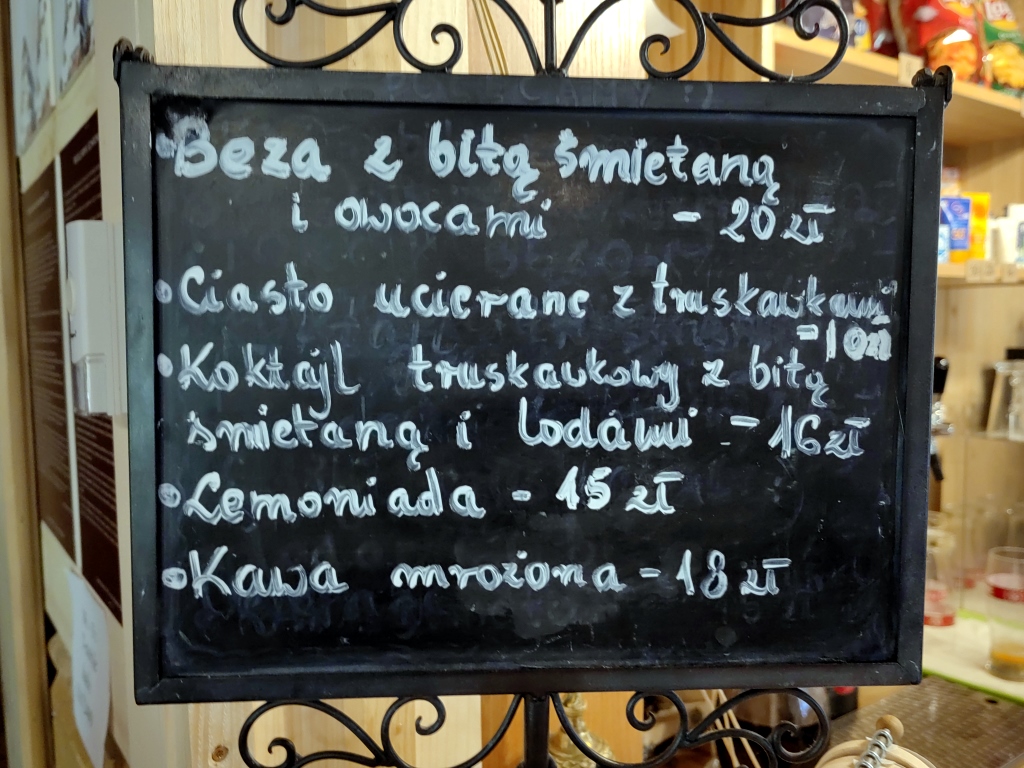 • Beza z bitą śmietaną
i owocami - 20 zł
• Ciasto ucierane z truskawkami
- 10 zł
• Koktajl truskawkowy z bitą
śmietaną i lodami - 16 zł
• Lemoniada - 15 zł
• Kawa mrożona - 18 zł